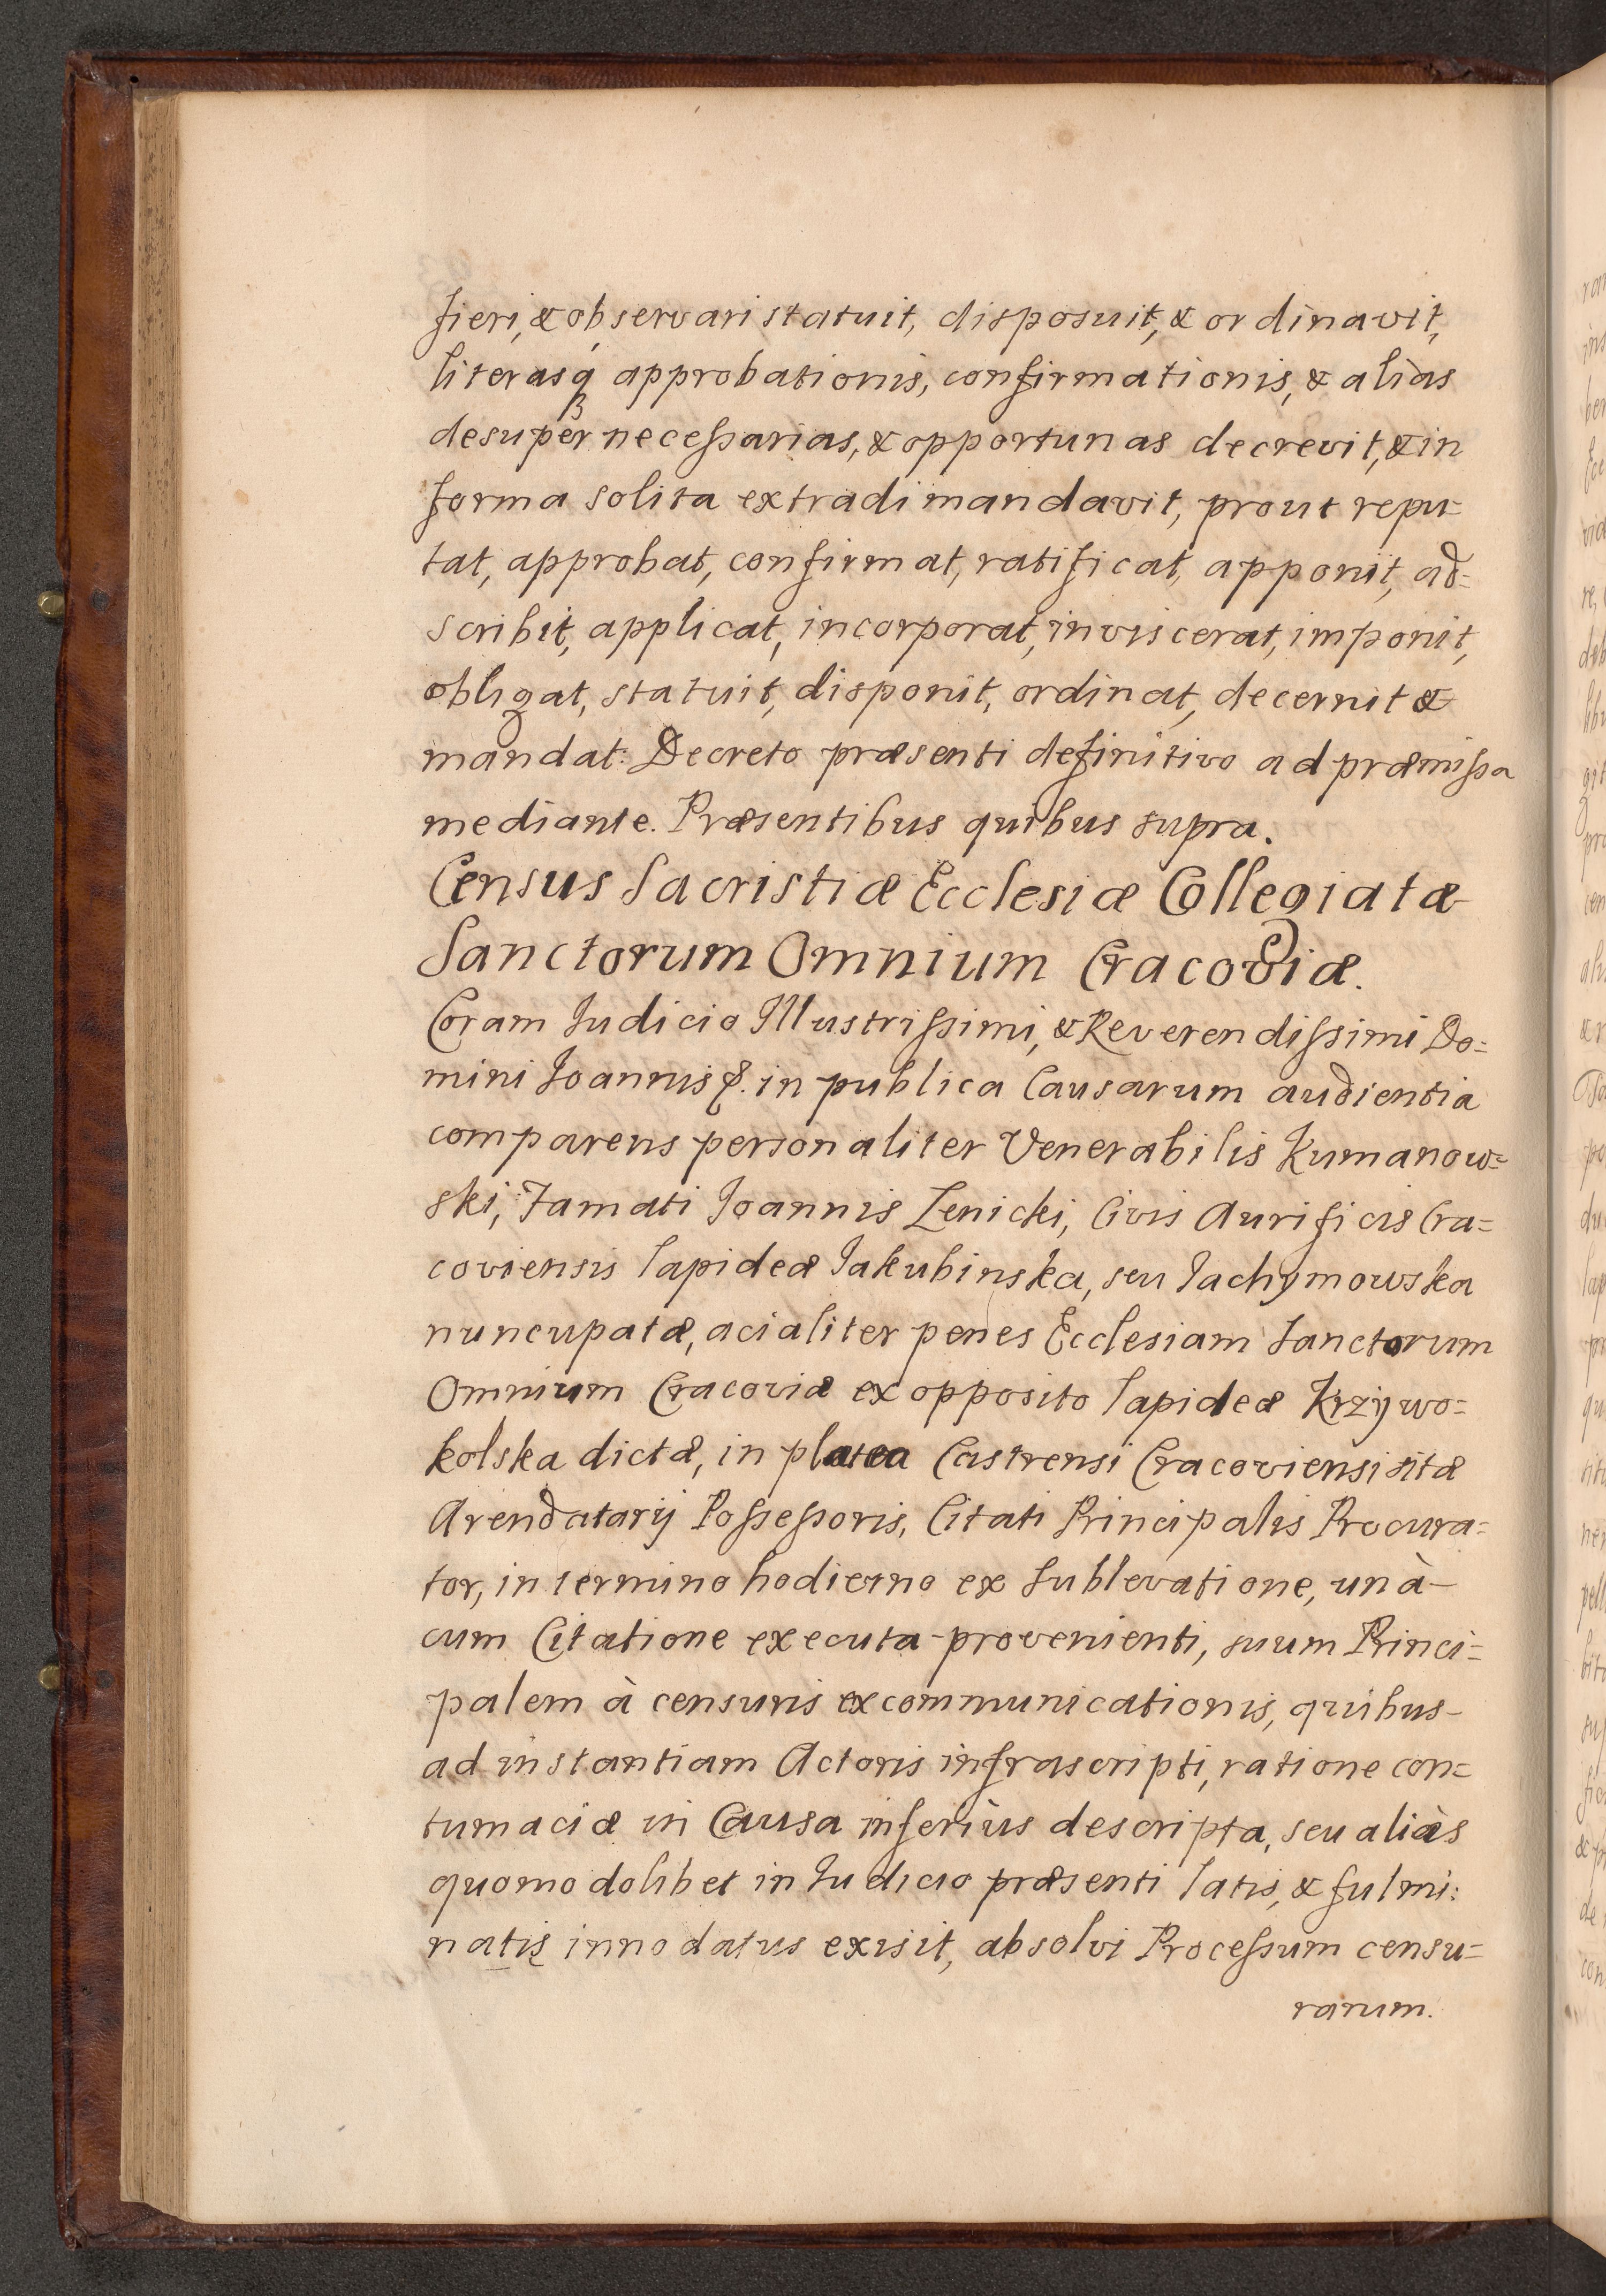 fieri, & observari statuit, disposuit, & ordinavit,
literasq́ꝫ approbationis, confirmationis, & alias
desuper necessarias, & opportunas decrevit, & in
forma solita extradi mandavit, prout repu=
tat, approbat, confirmat, ratificat, apponit, ad=
scribit, applicat, incorporat, inviscerat, imponit,
obligat, statuit, disponit, ordinat, decernit &
mandat: Decreto præsenti definitivo ad præmissa
mediante. Præsentibus quibus supra.
Census Sacristiæ Ecclesiæ Collegiatæ
Sanctorum Omnium Cracoviæ.
Coram Iudicio Illustrissimi, & Reverendissimi Do=
mini Ioannis &. in publica Causarum audientia
comparens personaliter Venerabilis Kumanow=
ski, Famati Ioannis Zenicki, Civis Aurificis Cra=
coviensis lapideæ Jakubinska, seu Jachymowska
nuncupatæ, acialiter penes Ecclesiam Sanctorum
Omnium Cracoviæ ex opposito lapideæ Krzywo=
kolska dictæ, in platea Castrensi Cracoviensi sitæ
Arendatarij Possessoris, Citati Principalis Procura=
tor, in termino hodierno ex sublevatione, unà-
cum Citatione executa-provenienti, suum Princi=
palem à censuris excommunicationis, quibus-
ad instantiam Actoris infrascripti, ratione con=
tumaciæ in Causa inferiùs descripta, seu aliàs
quomodolibet in Iudicio præsenti latis, & fulmi:
natis innodatus exisit, absolvi Processum censu=
rarum.